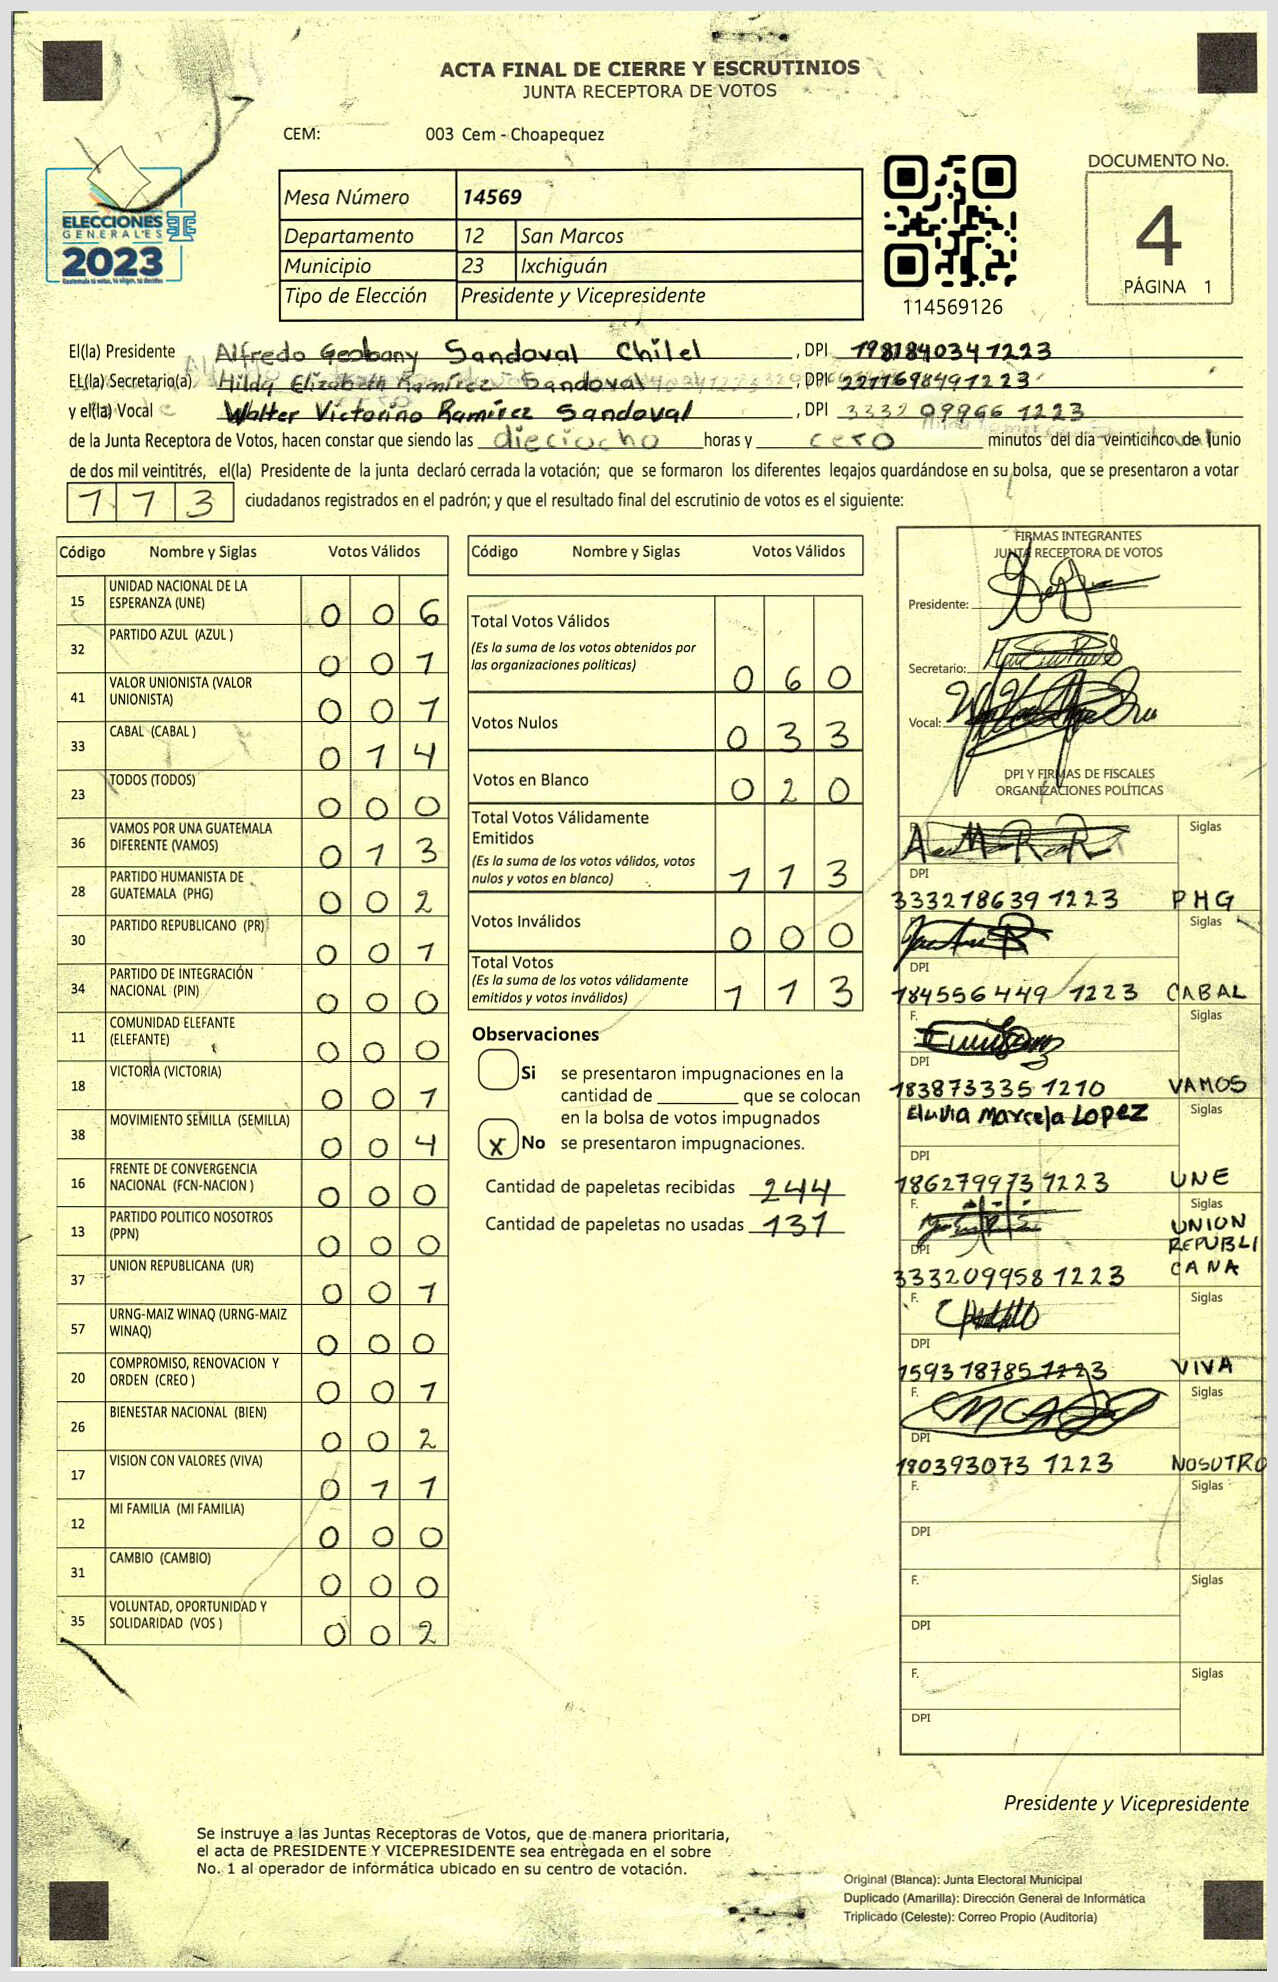 ACTA FINAL DE CIERRE Y ESCRUTINIOS
JUNTA RECEPTORA DE VOTOS
CEM: 003 Cem - Choapequez
ELECCIONES
GENERALES
2023
Mesa Número 14569
Departamento 12 San Marcos
Municipio 23 Ixchiguán
Tipo de Elección Presidente y Vicepresidente
114569126
DOCUMENTO No.
4
PÁGINA 1
El(la) Presidente Alfredo Geobany Sandoval Chilel, DPI 198184034 1223
EL(la) Secretario(a) Hilda Elizabeth Ramírez Sandoval, DPI 221169849 1223
y el(la) Vocal Walter Victorino Ramírez Sandoval, DPI 3332 09966 1223
de la Junta Receptora de Votos, hacen constar que siendo las dieciocho horas y cero minutos del día veinticinco de junio
de dos mil veintitrés, el(la) Presidente de la junta declaró cerrada la votación; que se formaron los diferentes legajos quardándose en su bolsa, que se presentaron a votar
113 ciudadanos registrados en el padrón; y que el resultado final del escrutinio de votos es el siguiente:
Código Nombre y Siglas Votos Válidos
15 UNIDAD NACIONAL DE LA ESPERANZA (UNE) 006
32 PARTIDO AZUL (AZUL ) 001
41 VALOR UNIONISTA (VALOR UNIONISTA) 001
33 CABAL (CABAL ) 014
23 TODOS (TODOS) 000
36 VAMOS POR UNA GUATEMALA DIFERENTE (VAMOS) 013
28 PARTIDO HUMANISTA DE GUATEMALA (PHG) 002
30 PARTIDO REPUBLICANO (PR) 001
34 PARTIDO DE INTEGRACIÓN NACIONAL (PIN) 000
11 COMUNIDAD ELEFANTE (ELEFANTE) 000
18 VICTORIA (VICTORIA) 001
38 MOVIMIENTO SEMILLA (SEMILLA) 004
16 FRENTE DE CONVERGENCIA NACIONAL (FCN-NACION ) 000
13 PARTIDO POLITICO NOSOTROS (PPN) 000
37 UNION REPUBLICANA (UR) 001
57 URNG-MAIZ WINAQ (URNG-MAIZ WINAQ) 000
20 COMPROMISO, RENOVACION Y ORDEN (CREO ) 001
26 BIENESTAR NACIONAL (BIEN) 002
17 VISION CON VALORES (VIVA) 011
12 MI FAMILIA (MI FAMILIA) 000
31 CAMBIO (CAMBIO) 000
35 VOLUNTAD, OPORTUNIDAD Y SOLIDARIDAD (VOS ) 002
Código Nombre y Siglas Votos Válidos
Total Votos Válidos
(Es la suma de los votos obtenidos por las organizaciones políticas) 060
Votos Nulos 033
Votos en Blanco 020
Total Votos Válidamente Emitidos
(Es la suma de los votos válidos, votos nulos y votos en blanco) 113
Votos Inválidos 000
Total Votos
(Es la suma de los votos válidamente emitidos y votos inválidos) 113
Observaciones
Si se presentaron impugnaciones en la
cantidad de ________ que se colocan
en la bolsa de votos impugnados
x No se presentaron impugnaciones.
Cantidad de papeletas recibidas 244
Cantidad de papeletas no usadas 131
FIRMAS INTEGRANTES
JUNTA RECEPTORA DE VOTOS
Presidente:
Secretario:
Vocal:
DPI Y FIRMAS DE FISCALES
ORGANIZACIONES POLÍTICAS
Siglas
DPI
333218639 1223 PHG
Siglas
DPI
184556449 1223 CABAL
F. Siglas
DPI
183873335 1210 VAMOS
Eluvia Marcela Lopez Siglas
DPI
186279973 1223 UNE
F. Siglas
DPI UNION REPUBLICANA
333209958 1223
F. Siglas
DPI
159318785 1223 VIVA
F. Siglas
DPI
180393073 1223 NOSOTRO
F. Siglas
DPI
F. Siglas
DPI
F. Siglas
DPI
Presidente y Vicepresidente
Se instruye a las Juntas Receptoras de Votos, que de manera prioritaria,
el acta de PRESIDENTE Y VICEPRESIDENTE sea entregada en el sobre
No. 1 al operador de informática ubicado en su centro de votación.
Original (Blanca): Junta Electoral Municipal
Duplicado (Amarilla): Dirección General de Informática
Triplicado (Celeste): Correo Propio (Auditoría)